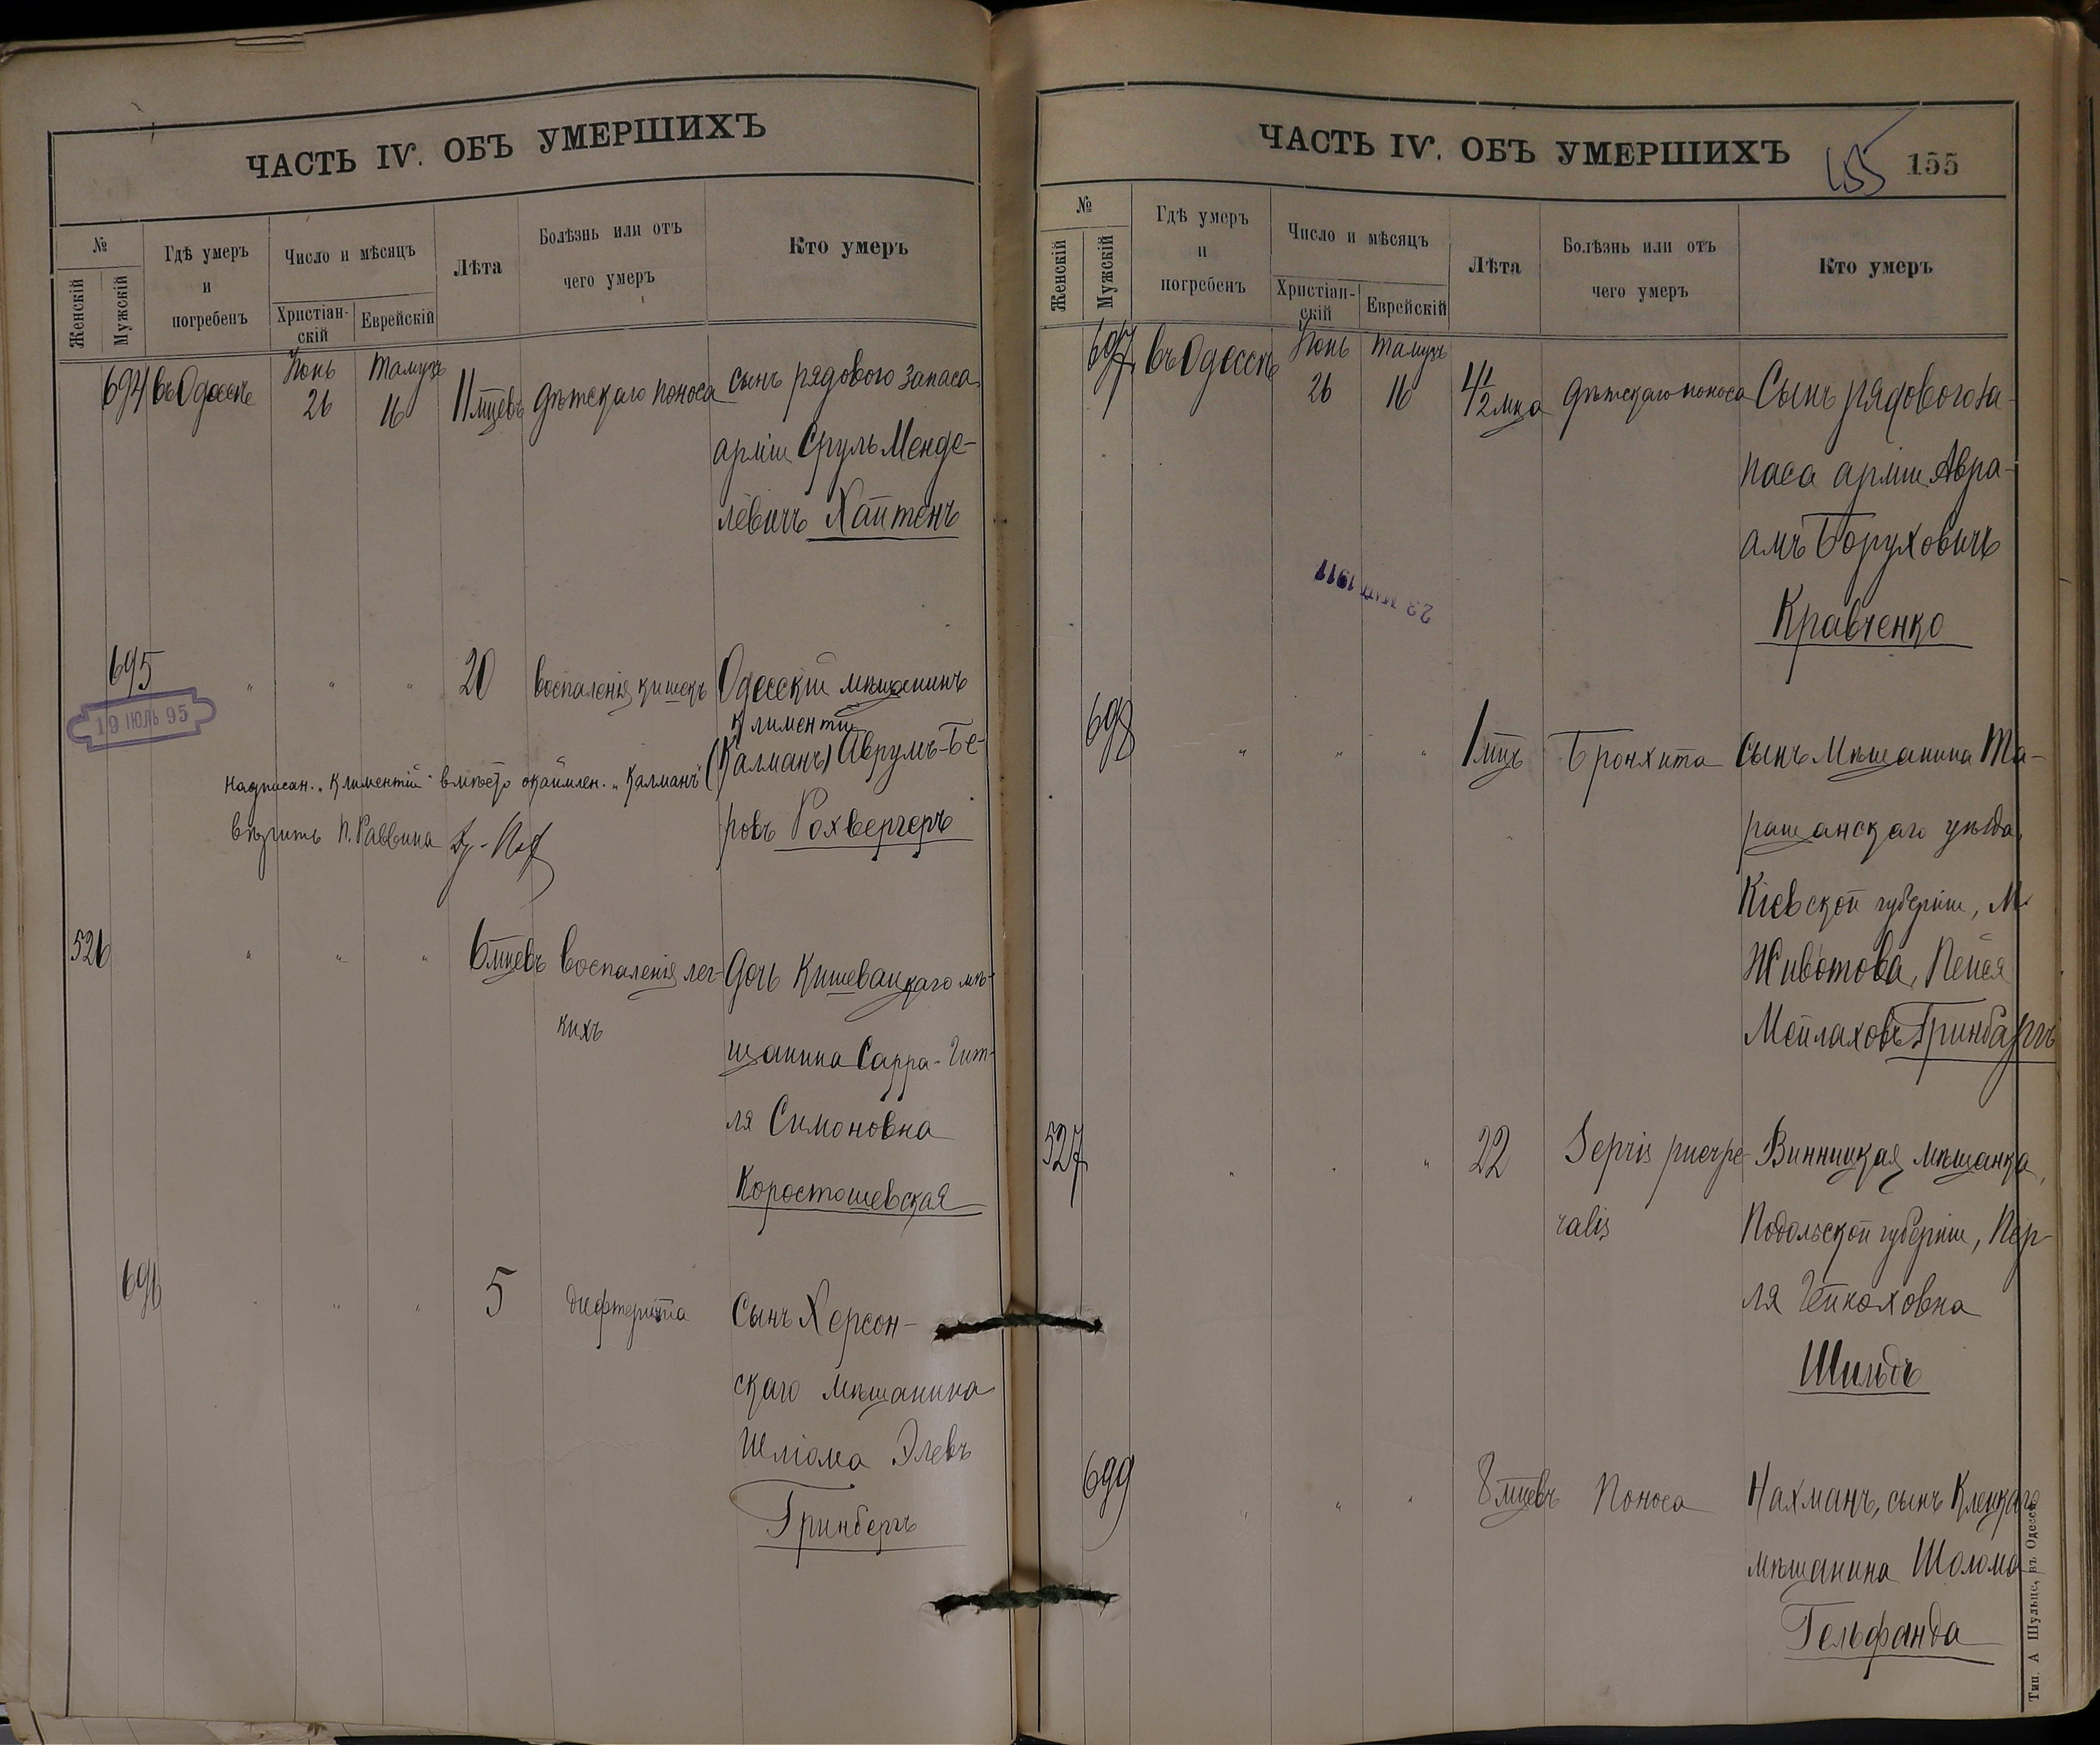 ЧАСТЬ IV. ОБЪ УМЕРШИХЪ
№
Женскій
Мужскій
Гдѣ умеръ
и
погребенъ
Число и мѣсяцъ
Христіан-
скій
Еврейскій
Лѣта
Болѣзнь или отъ
чего умеръ
Кто умеръ
694 въ Одессѣ Іюнь 26 Тамузъ 16 11 мцевъ дѣтскаго поноса сынъ рядового запаса
арміи Сруль Менде-
левичъ Хаитенъ
695 " " " 20 воспаленія кишекъ Одесскій мѣщанинъ
19 ІЮЛЬ 95
Климентій
(Калманъ) Аврумъ-Бе-
ровъ Рохвергеръ
Надписан. "Климентій" вмѣсто окаймлен. "Калманъ"
вѣрить П. Раввина
526 " " " 6 мцевъ воспаленія лег-
кихъ
дочь Кишевацкаго мѣ-
щанина Сарра-Гит-
ля Симоновна
Коростошевская
696 " " " 5 дифтерита Сынъ Херсон-
скаго мѣщанина
Шліома Элевъ
Гринбергъ
ЧАСТЬ IV. ОБЪ УМЕРШИХЪ
155 155
№
Женскій
Мужскій
Гдѣ умеръ
и
погребенъ
Число и мѣсяцъ
Христіан-
скій
Еврейскій
Лѣта
Болѣзнь или отъ
чего умеръ
Кто умеръ
697 въ Одессѣ Іюнь 26 Тамузъ 16 4 1/2 мца дѣтскаго поноса Сынъ рядового за-
паса арміи Авра-
амъ Боруховичъ
Кравченко
698 " " " 1 мцъ Бронхита Сынъ Мѣщанина Та-
ращанскаго уѣзда,
Кіевской губерніи, М.
Животова, Пейся
Мейлаховъ Гринбаргъ
527 " " " 22 Sepsis puerpe-
ralis
Винницкая мѣщанка,
Подольской губерніи, Пер-
ля
Шильдъ
699 " " " 8 мцевъ Поноса Нахманъ, сынъ Клецкаго
мѣщанина Шолома
Гельфанда
Тип. А Шульце, въ Одессѣ